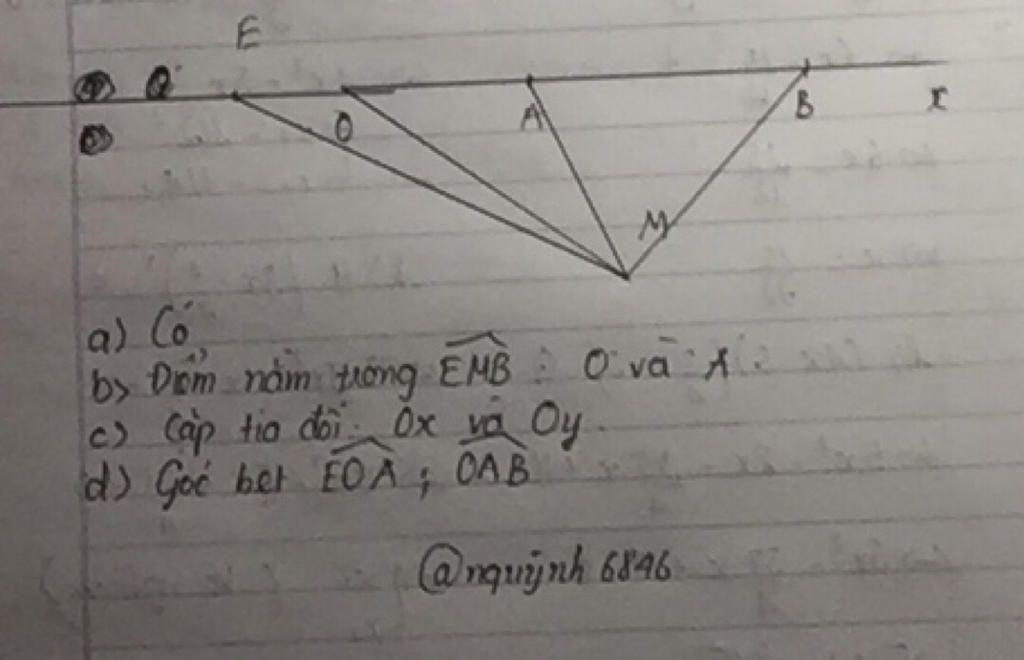 E
O A B x
M
a) Có
b) Điểm nằm trong EMB : O và A.
c) Cặp tia đối: Ox và Oy.
d) Góc bẹt EOA ; OAB
@nquỳnh 6846